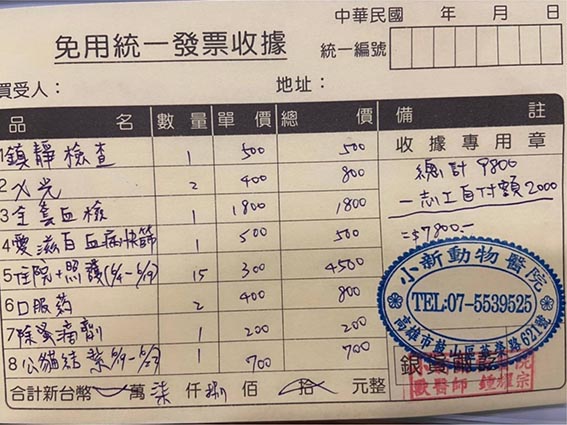 中華民國 年 月 日
免用統一發票收據
統一編號
買受人： 地址：
品 名 數量 單價 總 價 備 註
收據專用章
1鎮靜檢查 1 500 500
2X光 2 400 800
3全套血檢 1 1800 1800
4愛滋白血病快篩 1 500 500
5住院+照護 15 300 4500
6口服药 2 400 800
7除蚤滴劑 1 200 200
8公貓結紮 1 700 700
總計 9800
-志工自付額2000
=$7800.-
小新動物醫院
TEL:07-5539525
高雄市鼓山區 621號
獸醫師 鍾耀宗
合計新台幣 萬柒仟捌佰 拾 元整